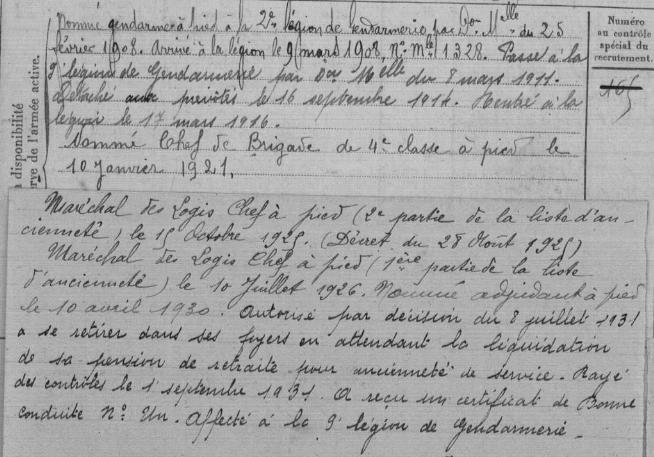 Nommé gendarme à pied à la 2e légion de gendarmerie par Don Mlle du 25
février 1908. Arrivé à la légion le 9 mars 1908, No Mle 1328. Passé à la
9e légion de Gendarmerie par Don Mlle du 8 mars 1911.
détaché aux prévôtés le 16 septembre 1914. Rentré à la
légion le 17 mars 1916.
Nommé Chef de Brigade de 4e classe à pied le
10 Janvier 1921.
Maréchal des Logis Chef à pied (2e partie de la liste d'an-
cienneté) le 15 Octobre 1925. (Décret du 28 Août 1925)
Maréchal des Logis Chef à pied (1ère partie de la liste
d'ancienneté) le 10 Juillet 1926. Nommé adjudant à pied
le 10 avril 1930. Autorisé par décision du 8 juillet 1931
a se retirer dans ses foyers en attendant la liquidation
de sa pension de retraite pour ancienneté de service. Rayé
des contrôles le 1 septembre 1931. A reçu un certificat de Bonne
conduite No Un. Affecté à la 9e légion de Gendarmerie.
Numéro
au contrôle
spécial du
recrutement.
165
n disponibilité
rve de l'armée active.